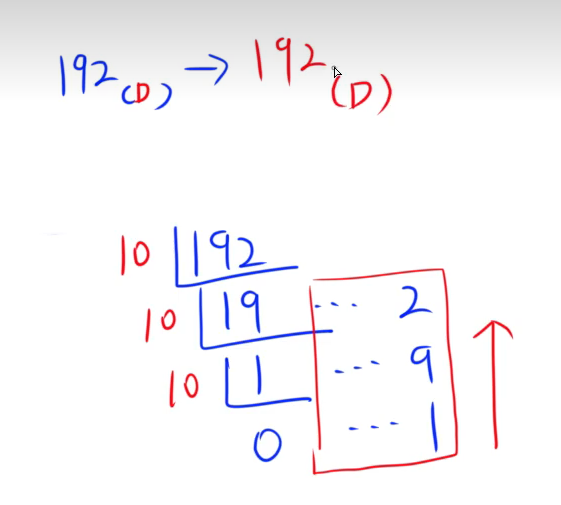 192(D) → 192(D)
10 192
10 19 ... 2
10 1 ... 9
0 ... 1